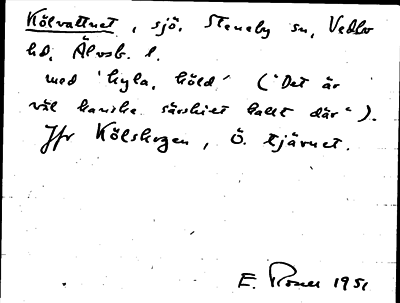 Kölvattnet, sjö. Steneby sn, Vedbo
hd, Älvsb. l.
med 'kyla, köld' ("Det är
väl kanske särskilt kallt där").
Jfr Kölskogen, Ö. tjärnet.
E. 1951